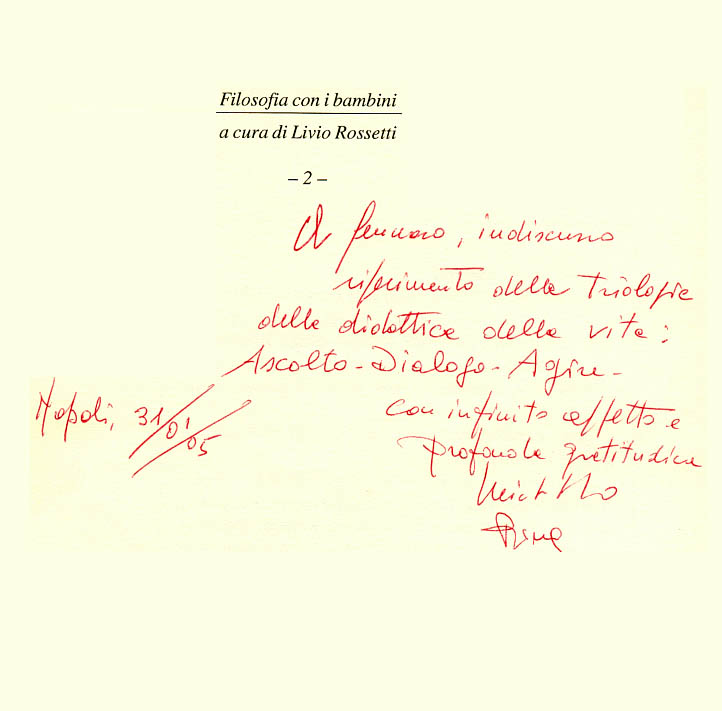 Filosofia con i bambini
a cura di Livio Rossetti
– 2 –
A Gennaro, indiscusso
riferimento della Triologia
della didattica della vita:
Ascolto - Dialogo - Agire -
con infinito affetto e
profonda gratitudine
Napoli, 31/01/05